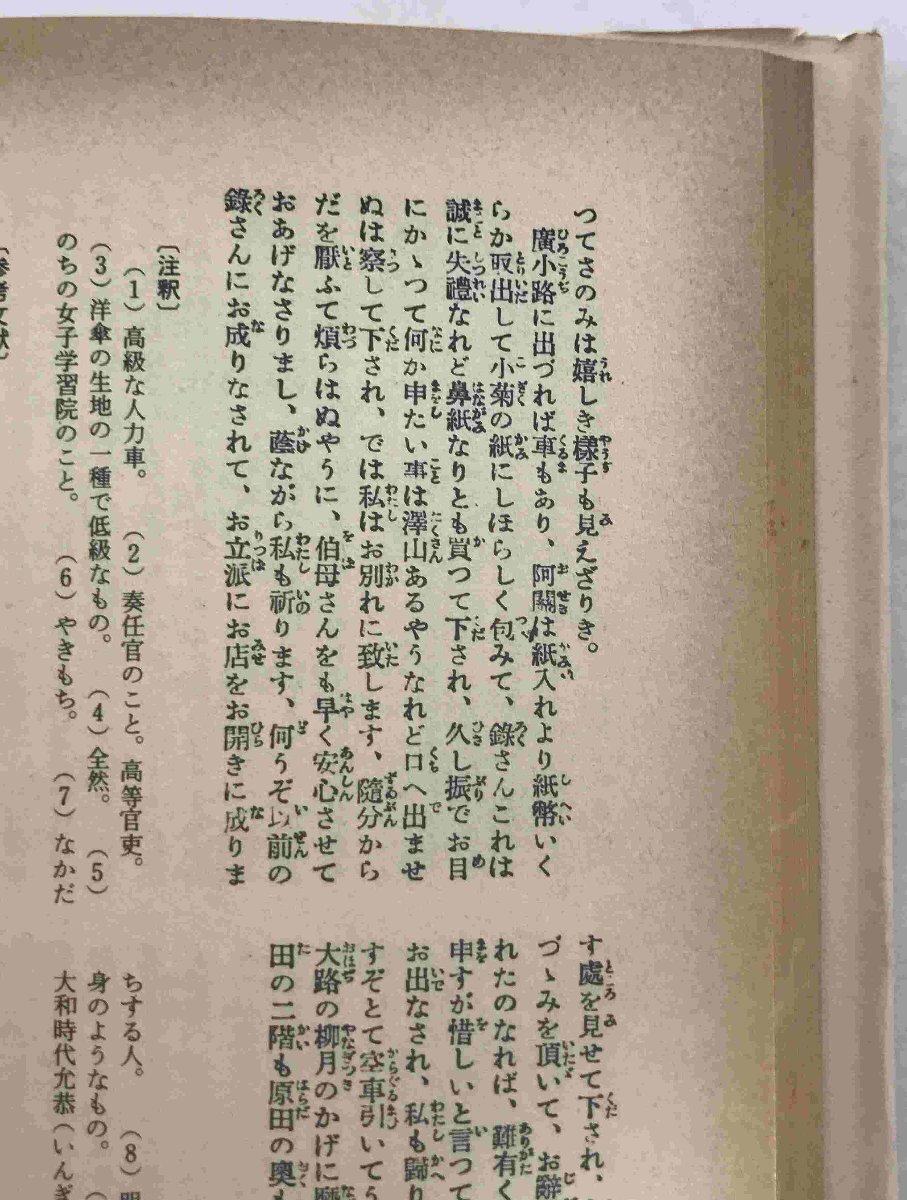 つてさのみは嬉しき樣子も見えざりき。
廣小路に出づれば車もあり、阿關は紙入れより紙幣いく
らか取出して小菊の紙にしほらしく包みて、錄さんこれは
誠に失禮なれど鼻紙なりとも買つて下され、久し振でお目
にかゝつて何か申たい事は澤山あるやうなれど口へ出ませ
ぬは察して下され、では私はお別れに致します、隨分から
だを厭ふて煩らはぬやうに、伯母さんをも早く安心させて
おあげなさりまし、蔭ながら私も祈ります、何うぞ以前の
錄さんにお成りなされて、お立派にお店をお開きに成りま
す處を見せて下され、
づゝみを頂いて、お辭
れたのなれば、難有く
申すが惜しいと言つて
お出なされ、私も歸り
すぞとて空車引いてう
大路の柳月のかげに
田の二階も原田の奧も
〔注釈〕
(1)高級な人力車。 (2)奏任官のこと。高等官吏。
(3)洋傘の生地の一種で低級なもの。 (4)全然。 (5)
のちの女子学習院のこと。 (6)やきもち。 (7)なかだ
ちする人。 (8)
身のようなもの。 (
大和時代允恭(いんぎ
〔参考文献〕